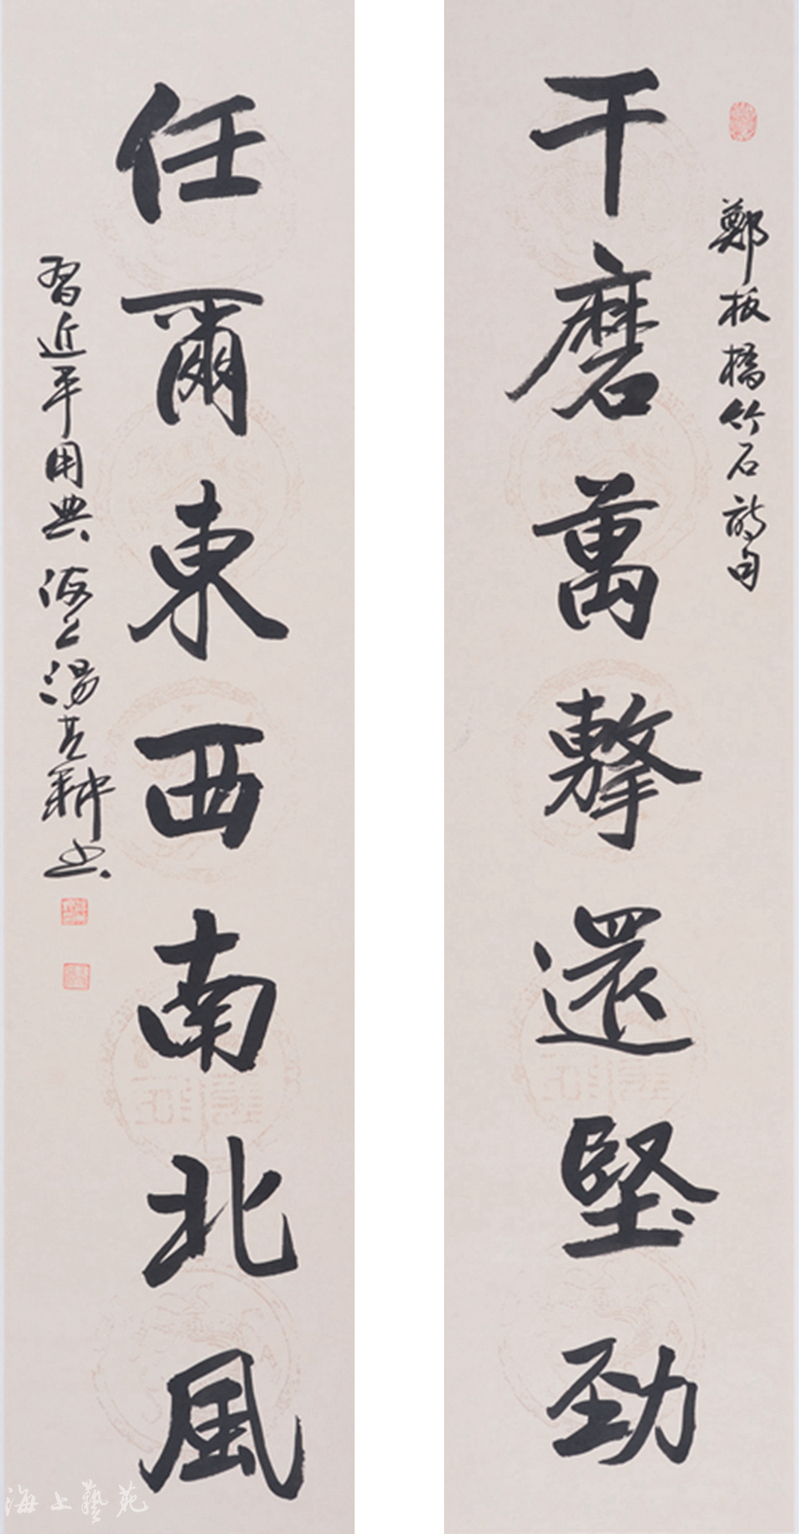 鄭板橋竹石詩句
千磨萬擊還堅勁
任爾東西南北風
習近平用典 海上湯其耕书
海上藝苑